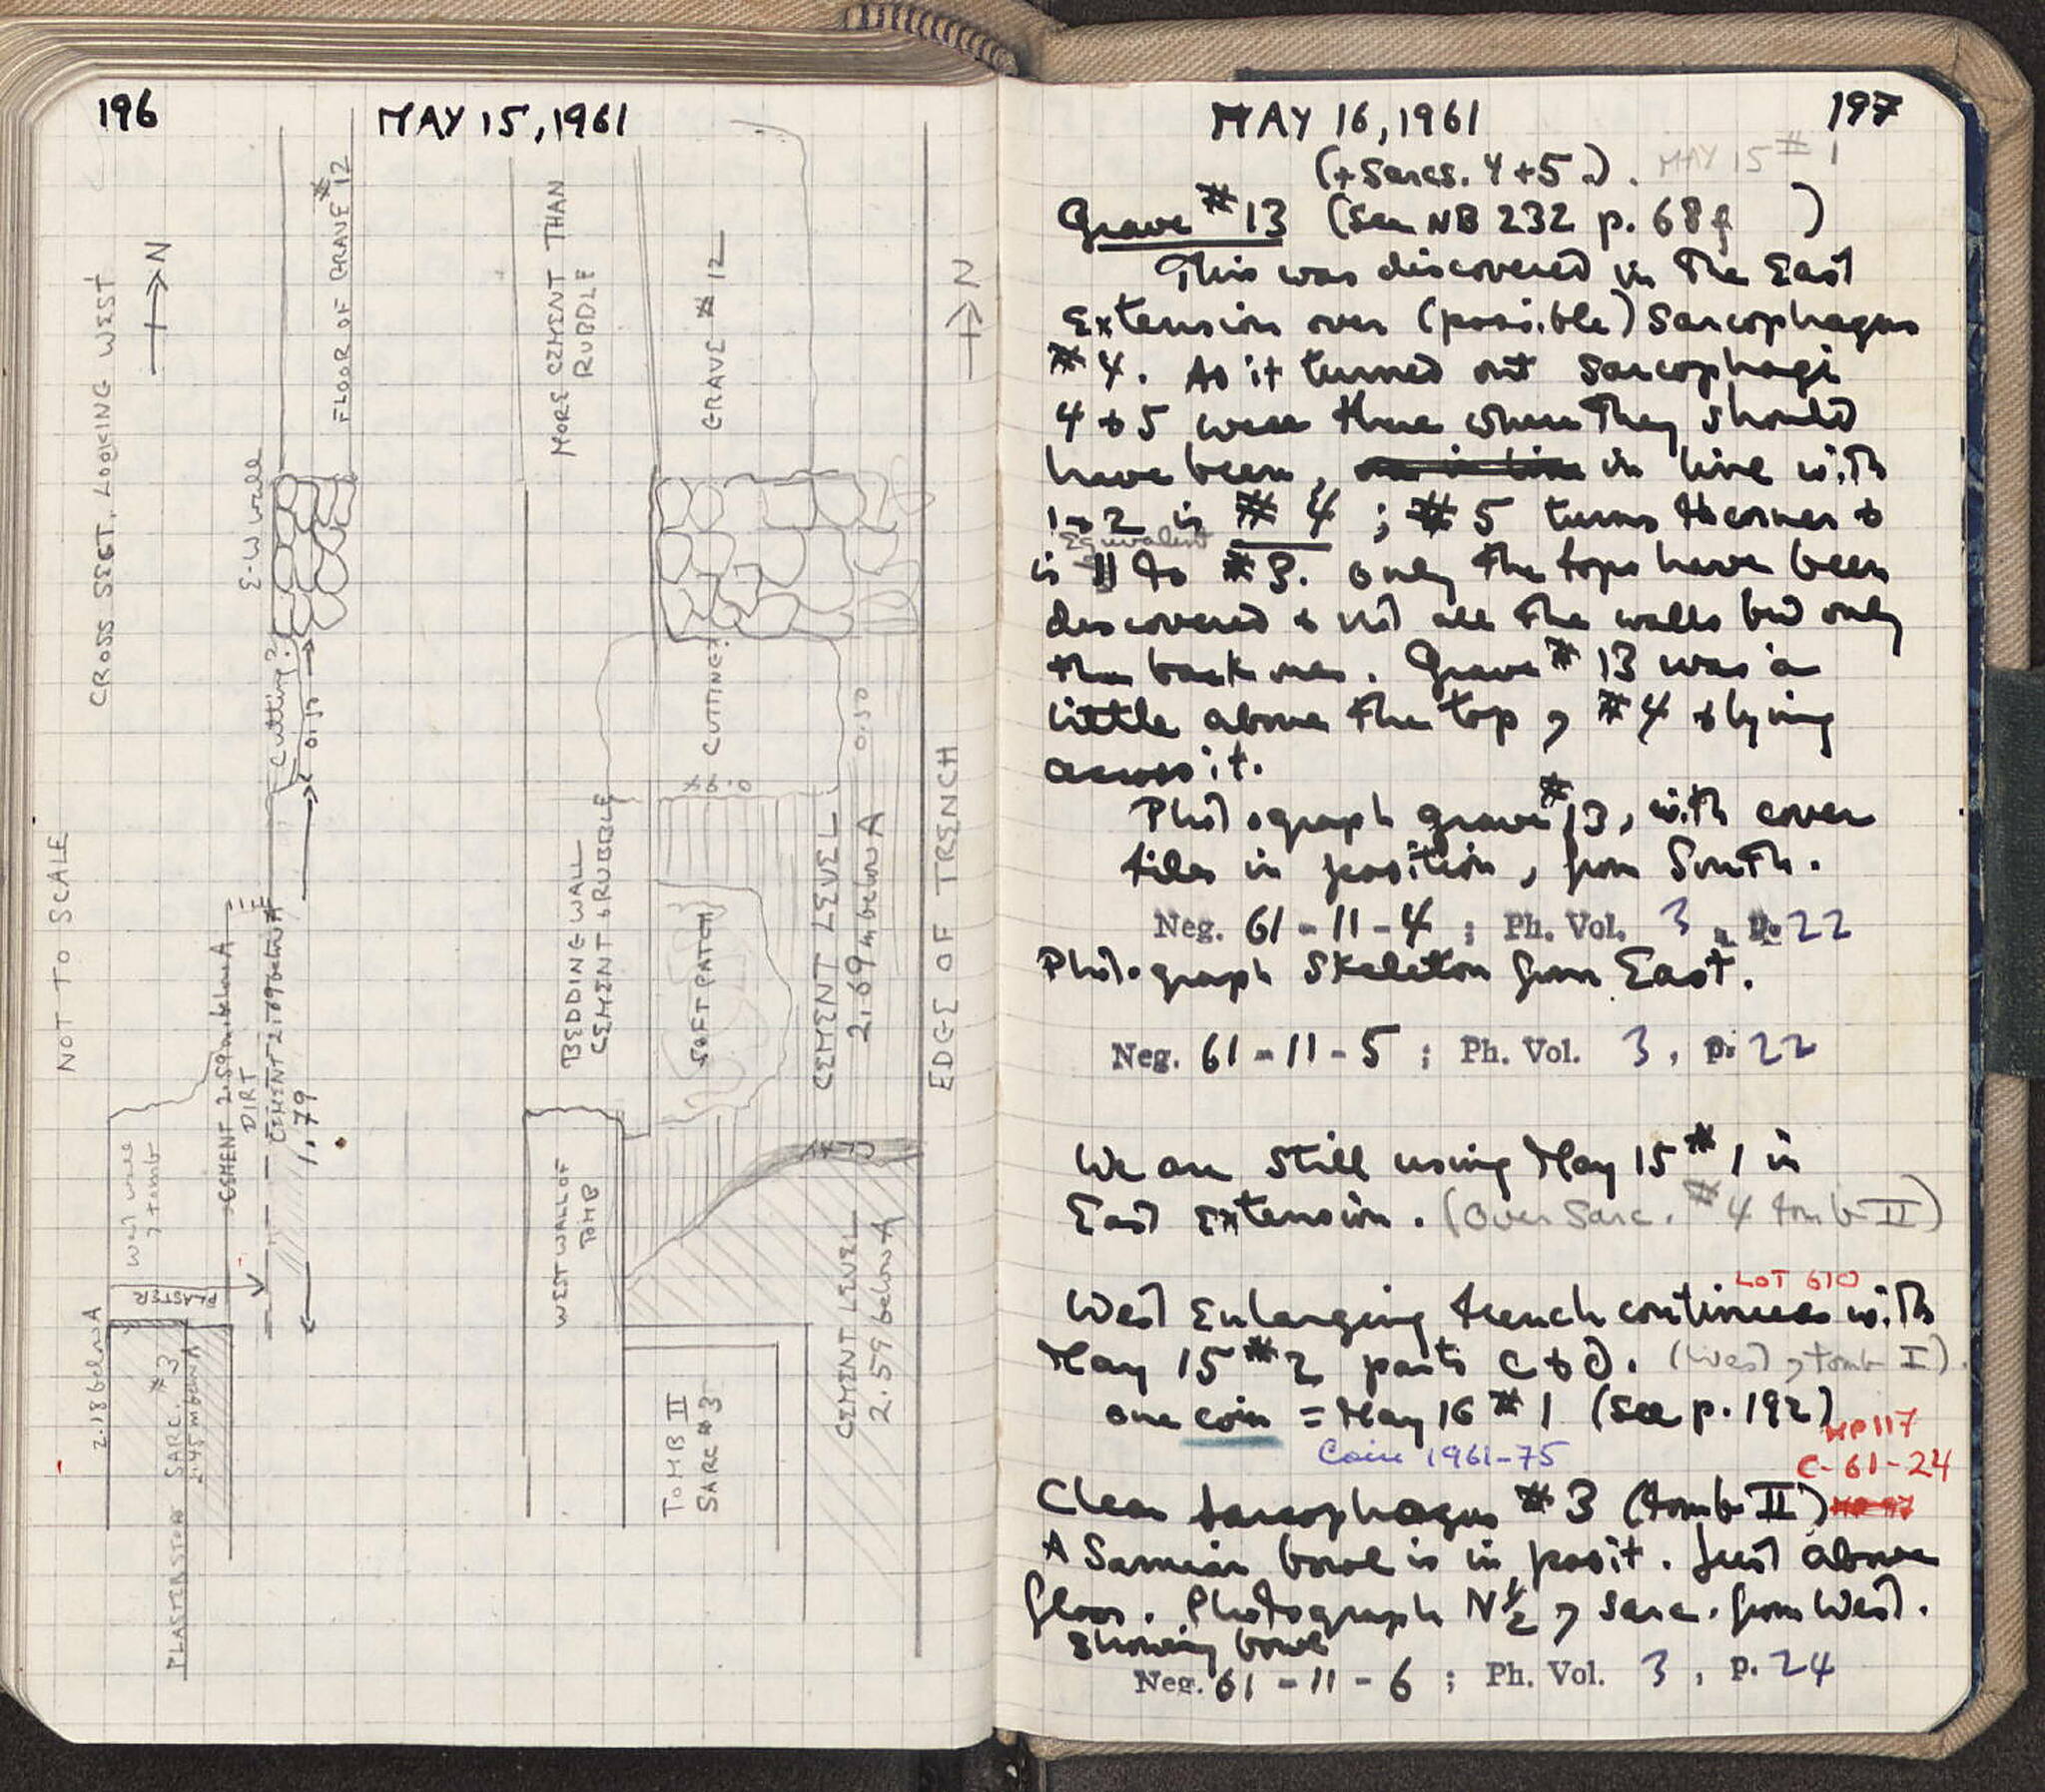 196
MAY 15, 1961
CROSS SECT. LOOKING WEST
NOT TO SCALE
N
FLOOR OF GRAVE #12
E-W wall
Cutting?
0.50
CEMENT 2.59 m. below A
DIRT
CEMENT 2.09 below A
1.79
West wall
, tomb
PLASTER
2.18 below A
SARC. #3
2.45 m below A
PLASTER STOP
MORE CEMENT THAN
RUBBLE
GRAVE #12
N
CUTTING?
0.50
BEDDING WALL
CEMENT & RUBBLE
SOFT PATCH
CEMENT LEVEL
2.09 m below A
EDGE OF TRENCH
WEST WALL OF
TOMB
CEMENT LEVEL
2.59 below A
TOMB II
SARC #3
MAY 16, 1961
197
(+ Sarcs. 4 + 5.). MAY 15 #1
Grave #13 (See NB 232 p. 68f )
This was discovered in the East
Extension over (possible) Sarcophagus
#4. As it turned out Sarcophagi
4 & 5 were there where they should
have been, in line with
1 & 2 is #4 ; #5 turns the corner &
Equivalent
is to #3. Only the tops have been
discovered & not all the walls but only
the back ones. Grave #13 was a
little above the top , #4 & lying
across it.
Photograph grave #13, with cover
tiles in position, from South.
Neg. 61-11-4 ; Ph. Vol. 3, p. 22
Photograph Skeleton from East.
Neg. 61-11-5 ; Ph. Vol. 3, p. 22
We are still using May 15 #1 in
East Extension. (Over Sarc. #4 tomb II)
LOT 610
West Enlarging trench continues with
May 15 #2 parts C & D. (West , tomb I).
one coin = May 16 #1 (See p. 192)
Coin 1961-75
MP 117
C-61-24
Clean Sarcophagus #3 (tomb II)
A Samian bowl is in posit. just above
floor. Photograph N ½ , Sarc. from West.
showing bowl
Neg. 61-11-6 ; Ph. Vol. 3, p. 24